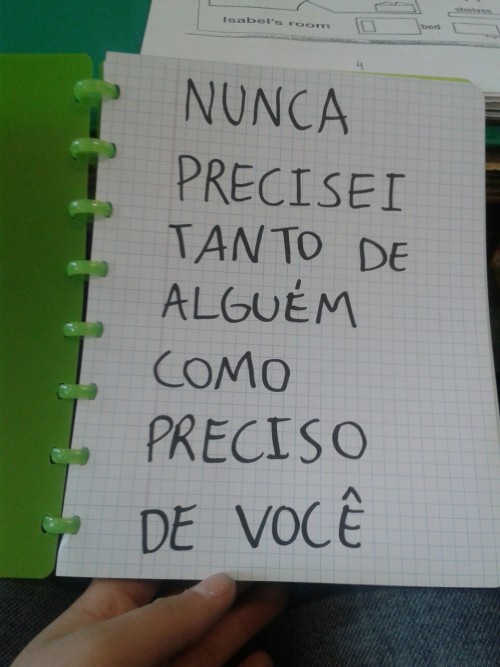 Isabel's room
bed
shelves
4
NUNCA
PRECISEI
TANTO DE
ALGUÉM
COMO
PRECISO
DE VOCÊ